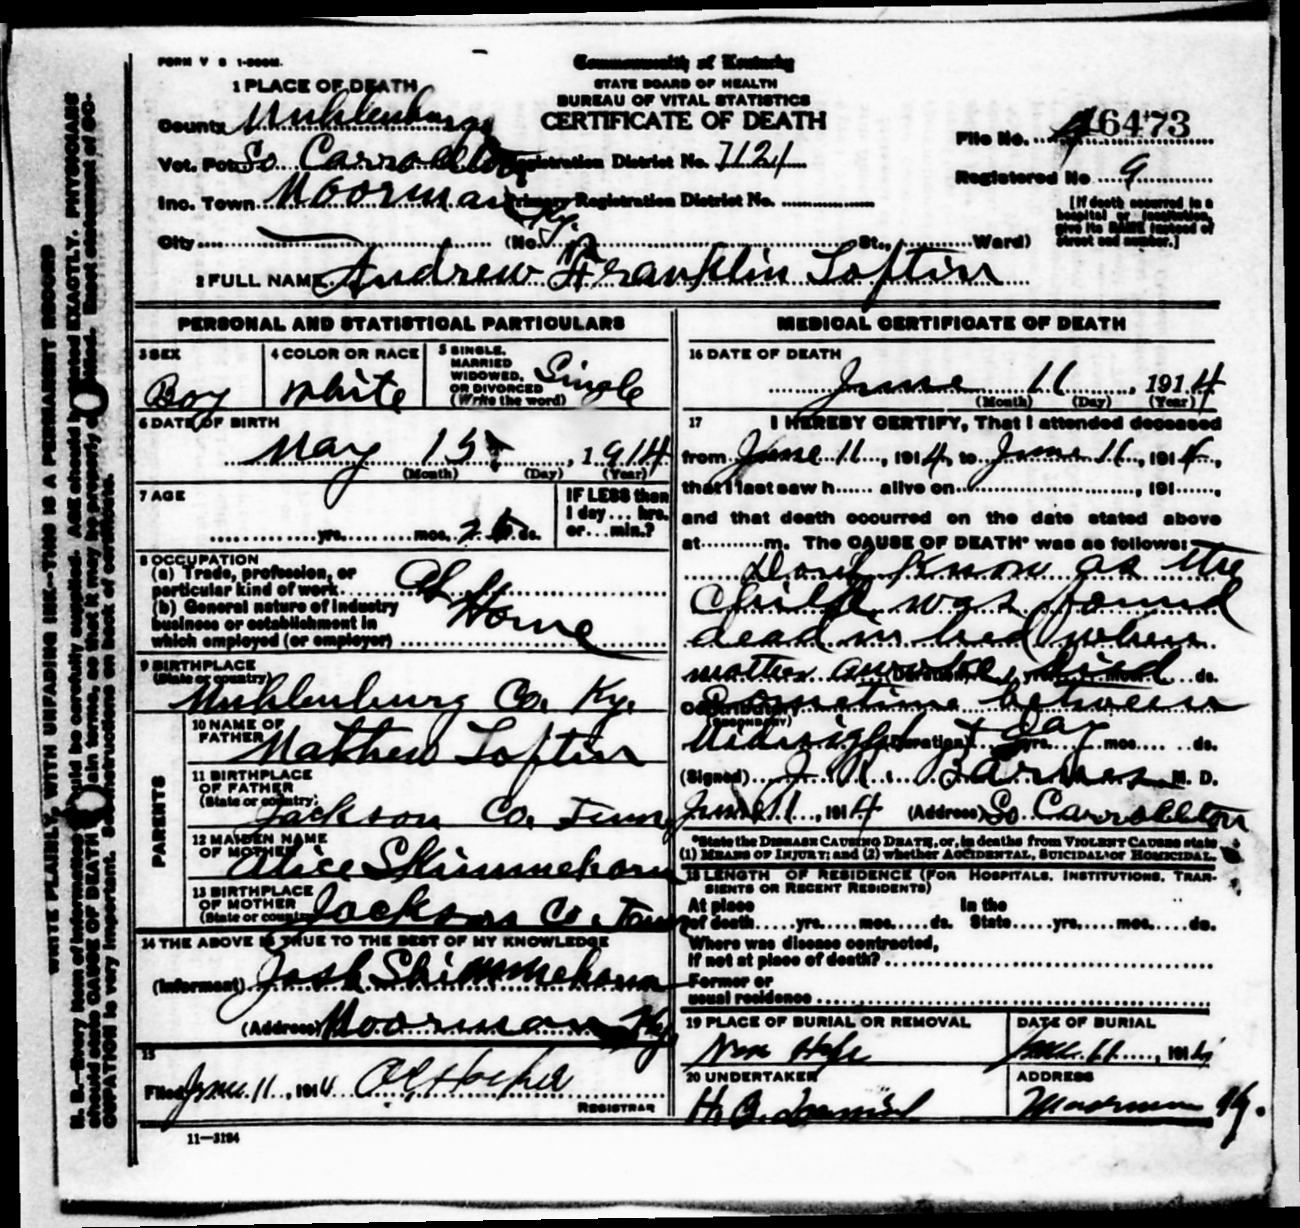 FORM V S 1-500M.
Commonwealth of Kentucky
STATE BOARD OF HEALTH
BUREAU OF VITAL STATISTICS
CERTIFICATE OF DEATH
1 PLACE OF DEATH
County Muhlenburg
Vot. Pct. So Carrollton Registration District No. 1121
Inc. Town Moorman Ky. Primary Registration District No.
City (No. St., Ward)
File No. 16473
Registered No 9
[If death occurred in a hospital or institution, give its NAME instead of street and number.]
2 FULL NAME Andrew Franklin Loftin
PERSONAL AND STATISTICAL PARTICULARS
3 SEX Boy
4 COLOR OR RACE White
5 SINGLE, MARRIED WIDOWED, OR DIVORCED (Write the word) Single
6 DATE OF BIRTH
May 15, 1914
(Month) (Day) (Year)
7 AGE
yrs. mos. 25 ds.
IF LESS than 1 day... hrs. or... min.?
8 OCCUPATION
(a) Trade, profession, or particular kind of work
(b) General nature of industry business or establishment in which employed (or employer)
At Home
9 BIRTHPLACE (State or country)
Muhlenburg Co. Ky.
PARENTS
10 NAME OF FATHER Mathew Loftin
11 BIRTHPLACE OF FATHER (State or country) Jackson Co. Tenn
12 MAIDEN NAME OF MOTHER Alice Skimmehorn
13 BIRTHPLACE OF MOTHER (State or country) Jackson Co. Tenn
14 THE ABOVE IS TRUE TO THE BEST OF MY KNOWLEDGE
(Informant) Josh Skimmehorn
(Address) Moorman Ky.
15
Filed June 11, 1914
REGISTRAR
11—3184
MEDICAL CERTIFICATE OF DEATH
16 DATE OF DEATH
June 11, 1914
(Month) (Day) (Year)
17 I HEREBY CERTIFY, That I attended deceased
from June 11, 1914, to June 11, 1914,
that I last saw h...... alive on..., 191......,
and that death occurred on the date stated above
at..........m. The CAUSE OF DEATH* was as follows:
Dont Know as the
Child was found
dead in bed when
mother awoke, died
(Duration) yrs. mos. ds.
Sometime between
Contributory (SECONDARY)
Midnight & day
(Duration) yrs. mos. ds.
(Signed) J. K. Barnes M. D.
June 11, 1914 (Address) So Carrollton
*State the DISEASE CAUSING DEATH, or, in deaths from VIOLENT CAUSES state
(1) MEANS OF INJURY; and (2) whether ACCIDENTAL, SUICIDAL or HOMICIDAL.
18 LENGTH OF RESIDENCE (FOR HOSPITALS, INSTITUTIONS, TRANSIENTS OR RECENT RESIDENTS)
At place of death yrs. mos. ds. In the State yrs. mos. ds.
Where was disease contracted,
If not at place of death?
Former or usual residence
19 PLACE OF BURIAL OR REMOVAL New Hope
DATE OF BURIAL June 11, 1914
20 UNDERTAKER
ADDRESS Moorman Ky.
WRITE PLAINLY, WITH UNFADING INK—THIS IS A PERMANENT RECORD
N. B.—Every item of information should be carefully supplied. AGE should be stated EXACTLY. PHYSICIANS
should state CAUSE OF DEATH in plain terms, so that it may be properly classified. Exact statement of OC-
CUPATION is very important. See instructions on back of certificate.